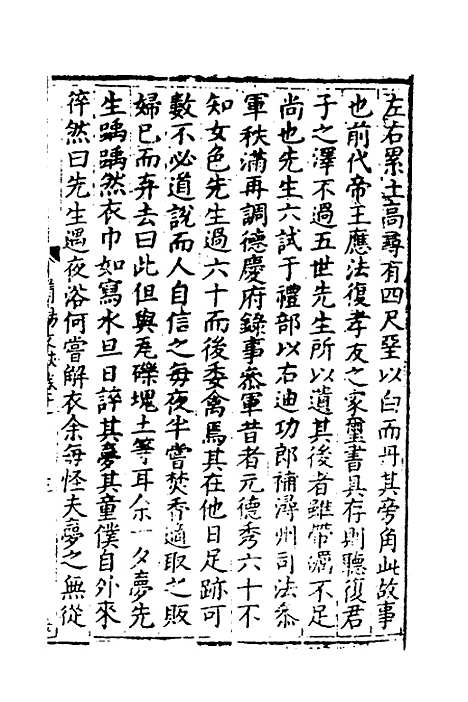 左右累土高尋有四尺堊以白而丹其旁角此故事
也前代帝王應法復孝友之家璽書具存則聽復君
子之澤不過五世先生所以遺其後者雖帶礪不足
尚也先生六試于禮部以右迪功郎補潯州司法叅
軍秩滿再調德慶府錄事叅軍昔者元德秀六十不
知女色先生過六十而後委禽焉其在他日足跡可
數不必道說而人自信之每夜半嘗焚香適取之販
婦已而弃去曰此但與瓦礫塊土等耳余一夕夢先
生踽踽然衣巾如寫水旦日誶其夢其童僕自外來
徍然曰先生遇夜浴何嘗解衣余每怪夫夢之無從